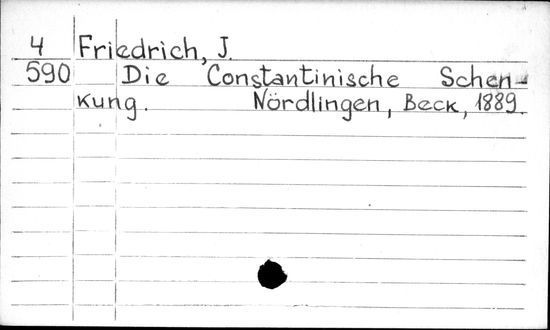 4 Friedrich, J.
590 Die Constantinische Schen-
kung. Nördlingen, Beck, 1889.